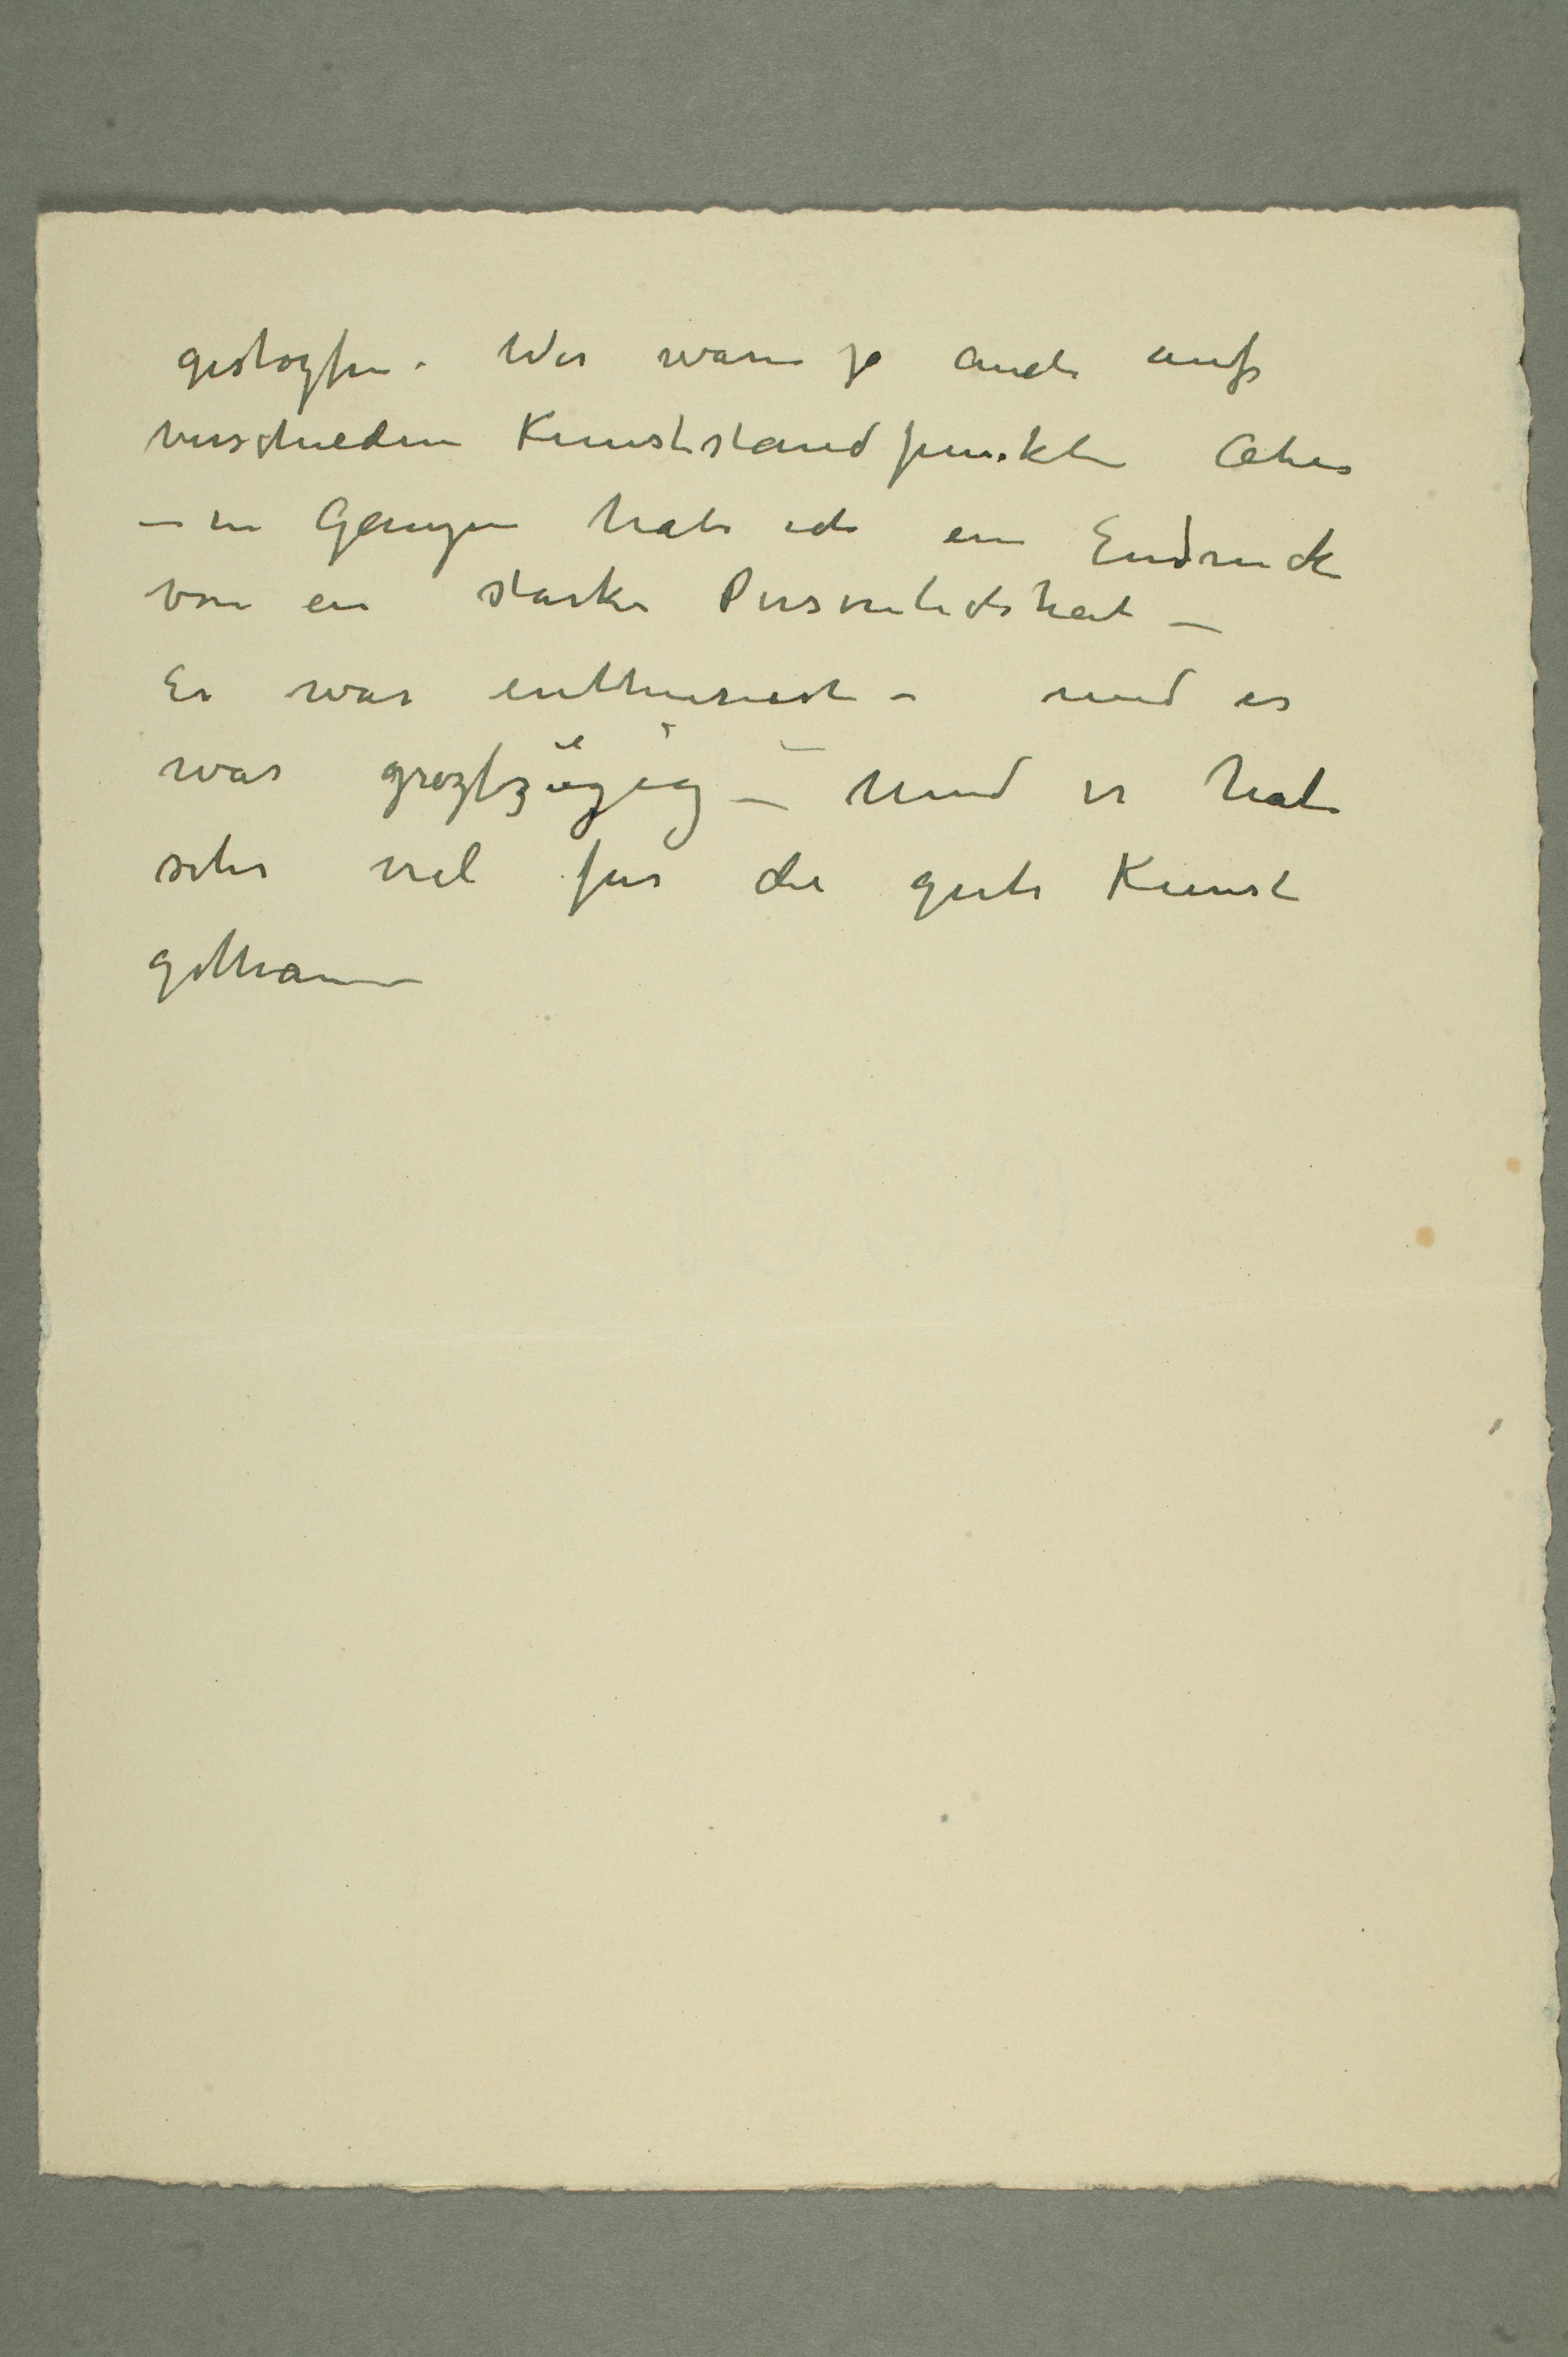 gestozfen. Wir waren ja auch auf
verschiedenen Kunststandpunkten Aber
– im Ganzen habe ich ein Eindruck
von ein starke Personlichkeit –
Er war enthusiast – und er
war grozfzügig – und er hat
sehr viel für die gute Kunst
gethan –